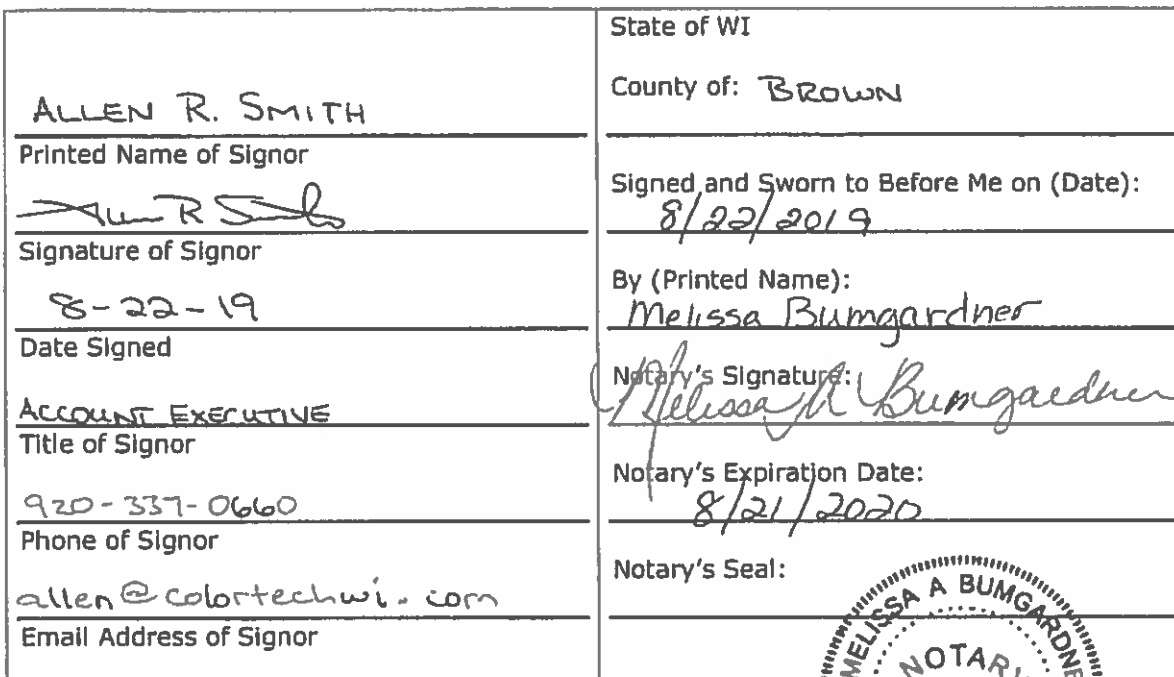 ALLEN R. SMITH
Printed Name of Signor
Allen R Smith
Signature of Signor
8-22-19
Date Signed
ACCOUNT EXECUTIVE
Title of Signor
920-337-0660
Phone of Signor
allen@colortechwi.com
Email Address of Signor
State of WI
County of: BROWN
Signed and Sworn to Before Me on (Date):
8/22/2019
By (Printed Name):
Melissa Bumgardner
Notary's Signature:
Melissa A Bumgardner
Notary's Expiration Date:
8/21/2020
Notary's Seal:
MELISSA A BUMGARDNE
NOTARY